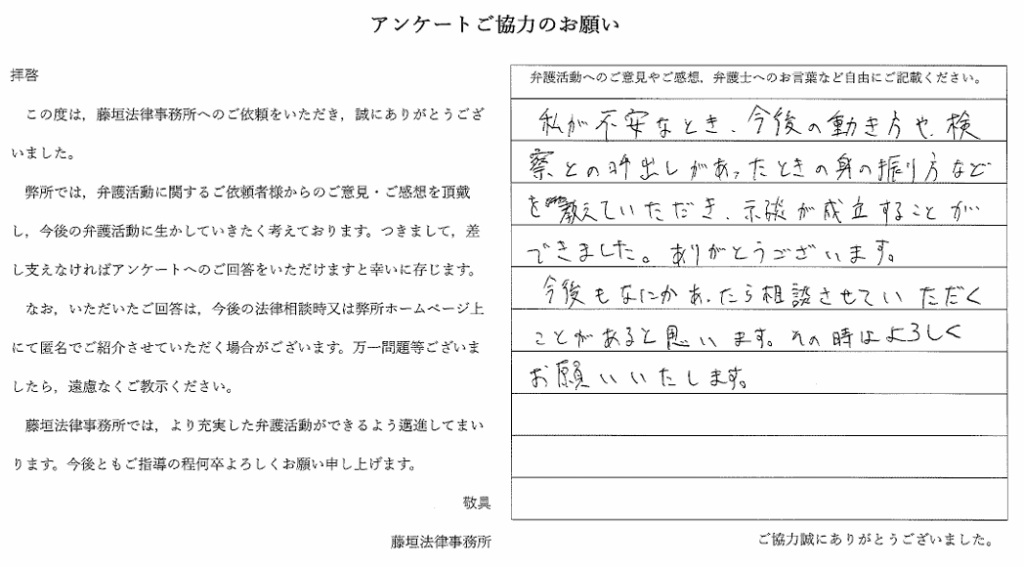 アンケートご協力のお願い
拝啓
この度は，藤垣法律事務所へのご依頼をいただき，誠にありがとうござ
いました。
弊所では，弁護活動に関するご依頼者様からのご意見・ご感想を頂戴
し，今後の弁護活動に生かしていきたく考えております。つきまして，差
し支えなければアンケートへのご回答をいただけますと幸いに存じます。
なお，いただいたご回答は，今後の法律相談時又は弊所ホームページ上
にて匿名でご紹介させていただく場合がございます。万一問題等ございま
したら，遠慮なくご教示ください。
藤垣法律事務所では，より充実した弁護活動ができるよう邁進してまい
ります。今後ともご指導の程何卒よろしくお願い申し上げます。
敬具
藤垣法律事務所
弁護活動へのご意見やご感想，弁護士へのお言葉など自由にご記載ください。
私が不安なとき、今後の動き方や、検
察との呼出しがあったときの身の振り方など
を教えていただき、示談が成立することが
できました。ありがとうございます。
今後もなにかあったら相談させていただく
ことがあると思います。その時はよろしく
お願いいたします。
ご協力誠にありがとうございました。